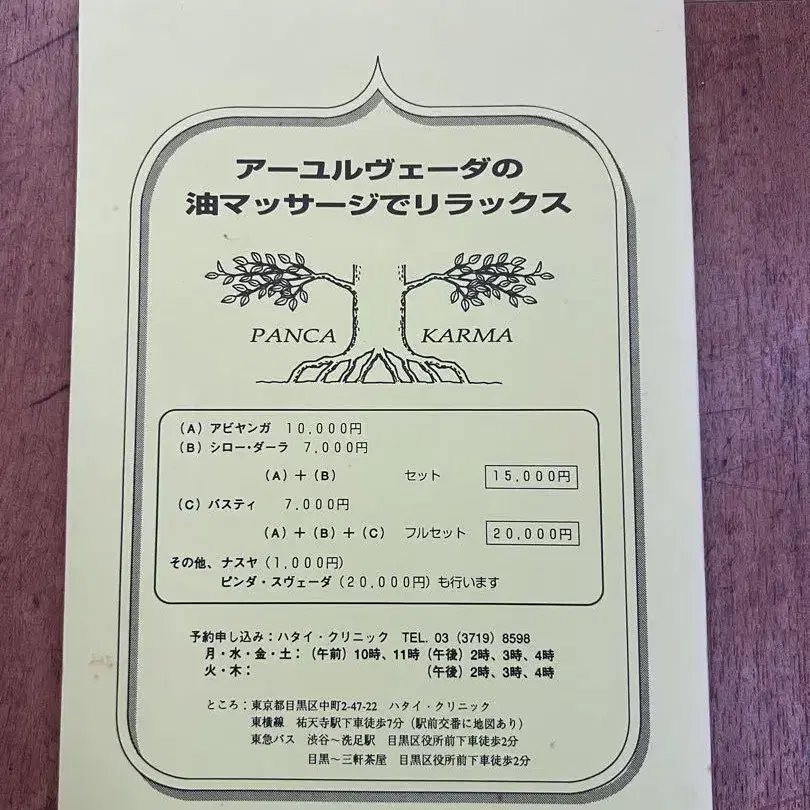 アーユルヴェーダの
油マッサージでリラックス
PANCA KARMA
(A) アビヤンガ 10,000円
(B) シロー・ダーラ 7,000円
(A)+(B) セット 15,000円
(C) バスティ 7,000円
(A)+(B)+(C) フルセット 20,000円
その他、ナスヤ(1,000円)
ピンダ・スヴェーダ(20,000円)も行います
予約申し込み:ハタイ・クリニック TEL. 03 (3719) 8598
月・水・金・土:(午前)10時、11時(午後)2時、3時、4時
火・木: (午後)2時、3時、4時
ところ:東京都目黒区中町2-47-22 ハタイ・クリニック
東横線 祐天寺駅下車徒歩7分(駅前交番に地図あり)
東急バス 渋谷〜洗足駅 目黒区役所前下車徒歩2分
目黒〜三軒茶屋 目黒区役所前下車徒歩2分